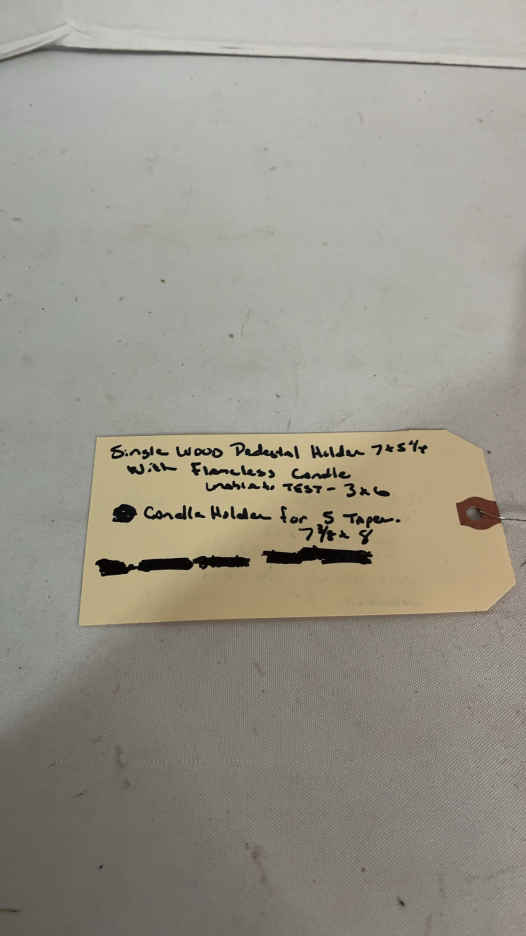 Single Wood Pedestal Holder 7x5¼
With Flameless Candle
unable to TEST - 3x6
Candle Holder for 5 Taper.
7⅜x 8